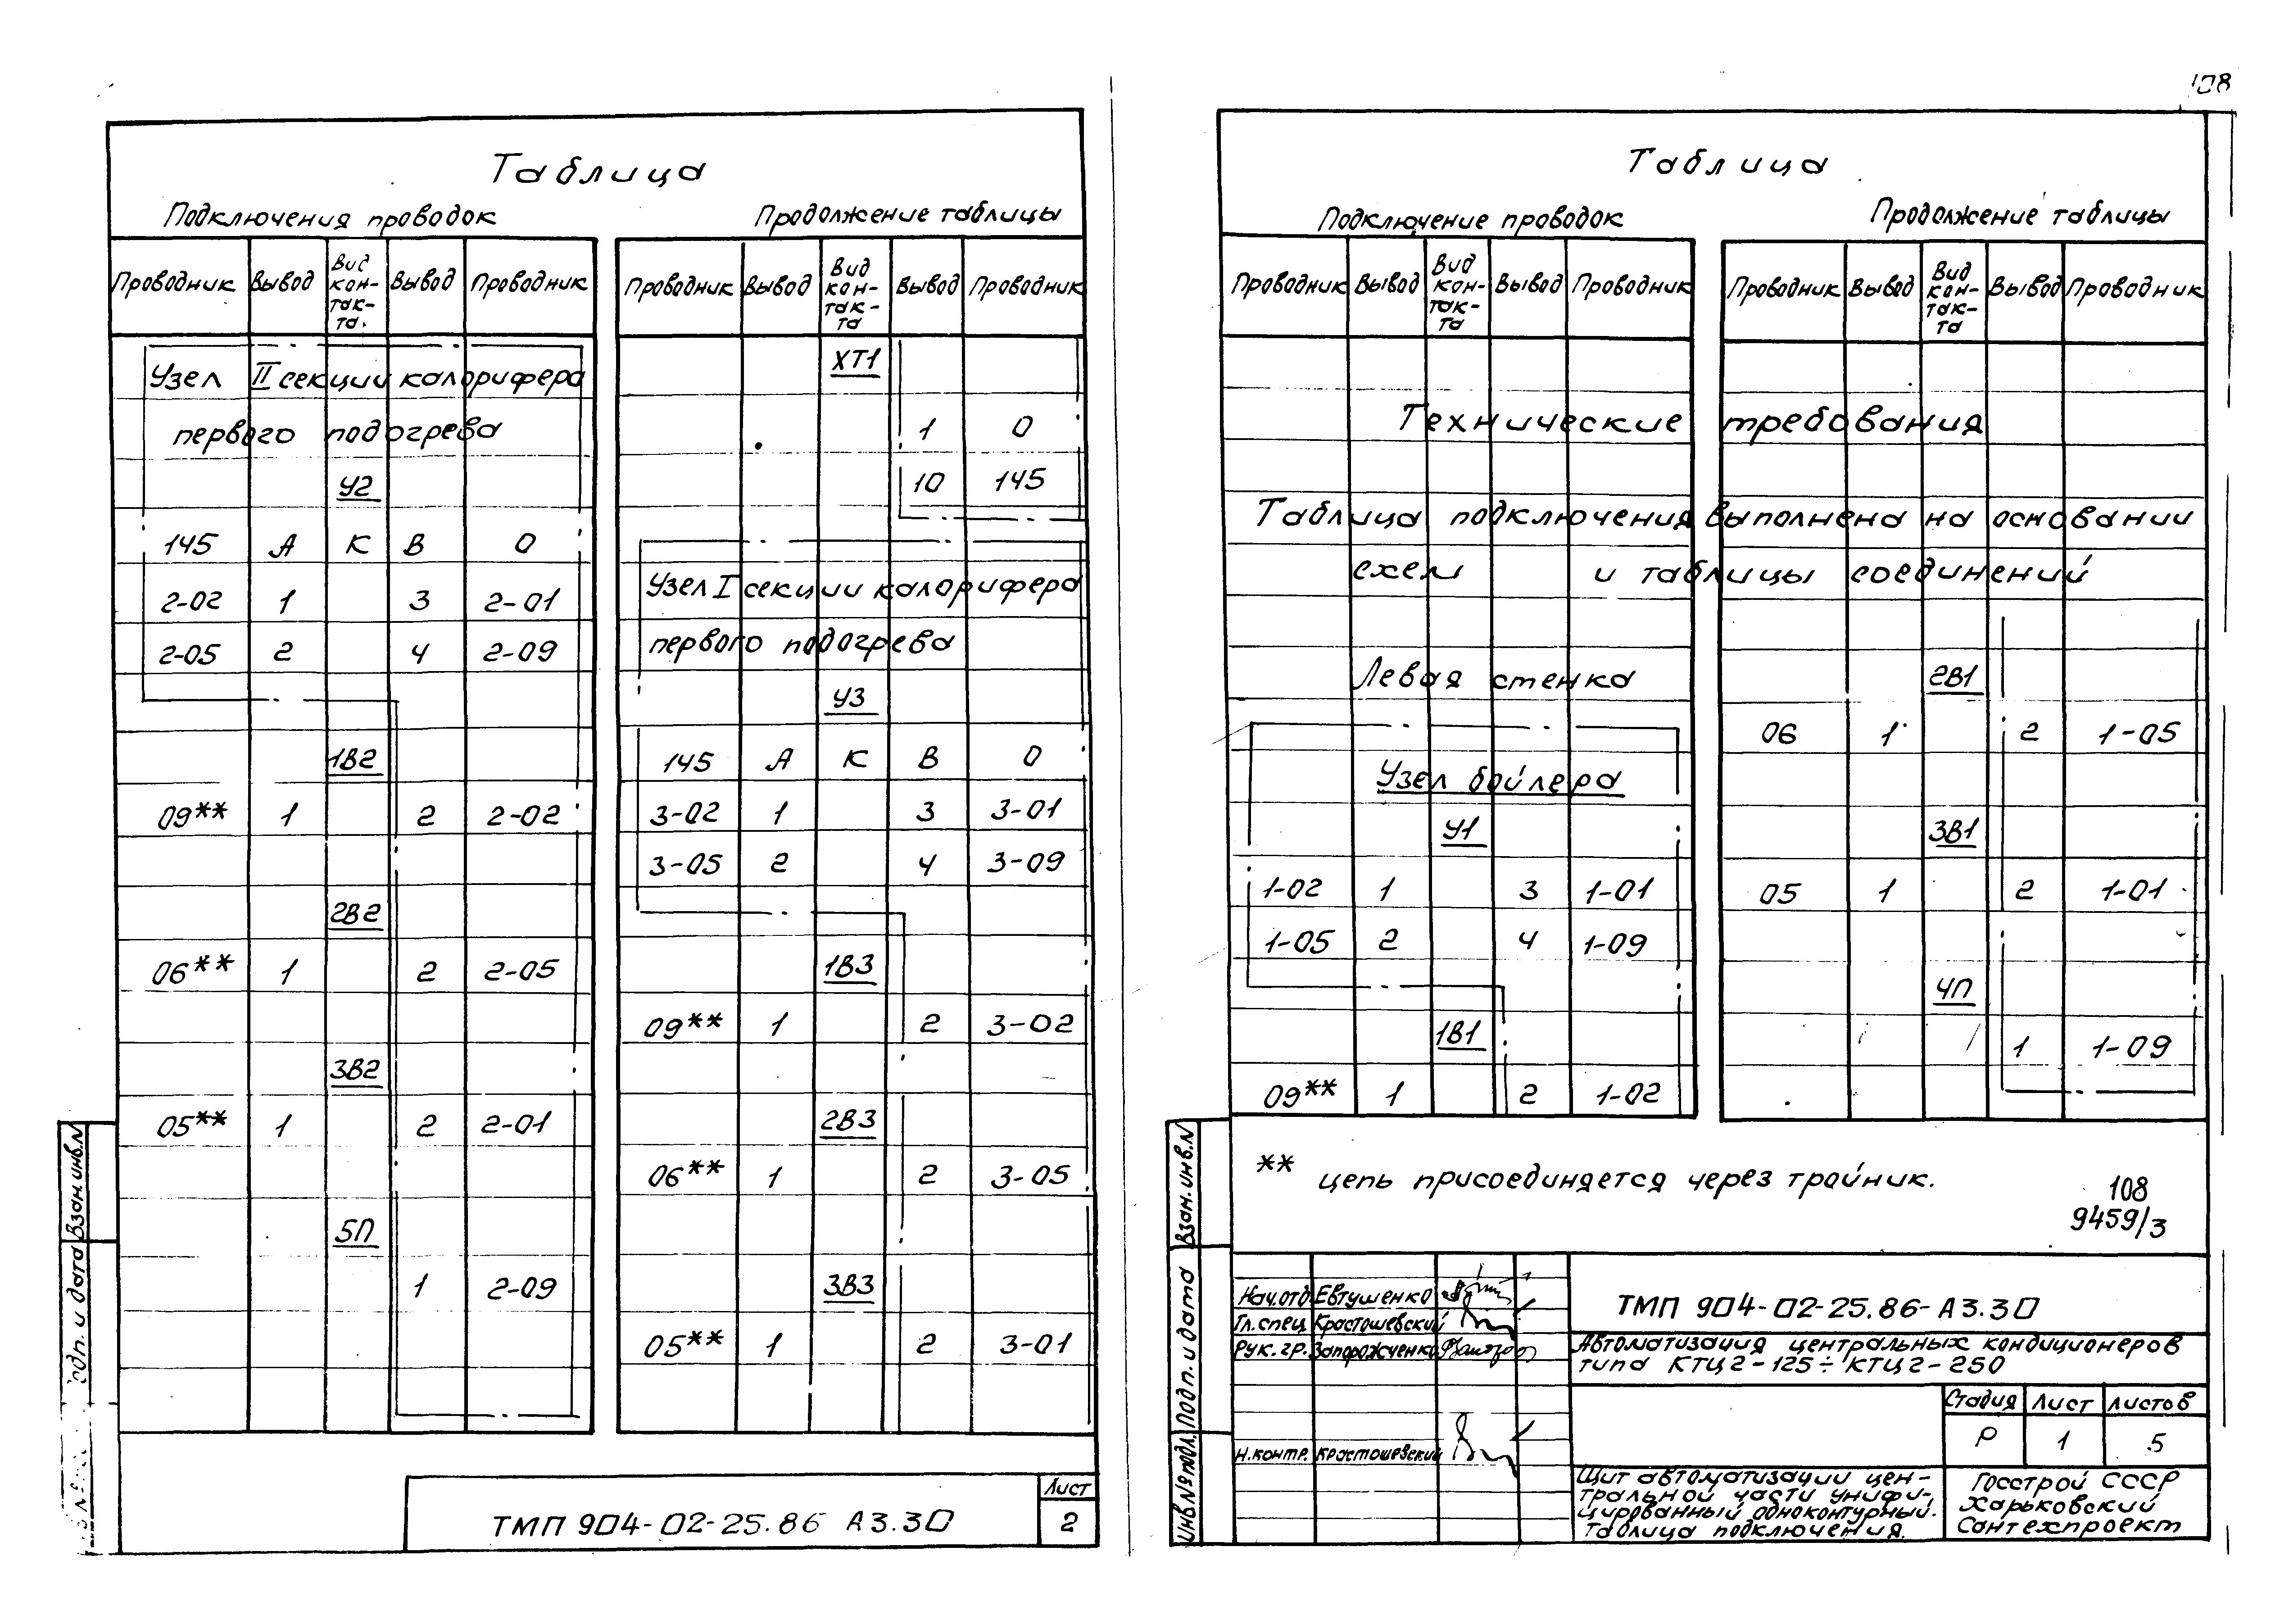 108
Таблица
Подключения проводок
Продолжение таблицы
Проводник Вывод Вид кон-так-та. Вывод Проводник
Узел II секции калорифера
первого подогрева
У2
145 А К В 0
2-02 1 3 2-01
2-05 2 4 2-09
1В2
09** 1 2 2-02
2В2
06** 1 2 2-05
3В2
05** 1 2 2-01
5П
1 2-09
Проводник Вывод Вид кон-так-та Вывод Проводник
ХТ1
1 0
10 145
Узел I секции калорифера
первого подогрева
У3
145 А К В 0
3-02 1 3 3-01
3-05 2 4 3-09
1В3
09** 1 2 3-02
2В3
06** 1 2 3-05
3В3
05** 1 2 3-01
Взам инв.N
подп. и дата
ТМП 904-02-25.86 А3.30
Лист
2
Таблица
Подключение проводок
Продолжение таблицы
Проводник Вывод Вид кон-так-та Вывод Проводник
Проводник Вывод Вид кон-так-та Вывод Проводник
Технические требования
Таблица подключения выполнена на основании
схем и таблицы соединений
Левая стенка
Узел бойлера
У1
1-02 1 3 1-01
1-05 2 4 1-09
1В1
09** 1 2 1-02
2В1
06 1 2 1-05
3В1
05 1 2 1-01
4П
1 1-09
** цепь присоединяется через тройник.
108
9459/3
Взам. инв.N
Подп. и дата
Инв №подл.
Нач.отд Евтушенко
Гл.спец Крастошевский
Рук. гр. Запорожченко
Н.контр. Крастошевский
ТМП 904-02-25.86-А3.30
Автоматизация центральных кондиционеров
типа КТЦ2-125÷КТЦ2-250
Стадия Лист Листов
Р 1 5
Щит автоматизации цен-
тральной части унифи-
цированный одноконтурный.
Таблица подключения.
Госстрой СССР
Харьковский
Сантехпроект